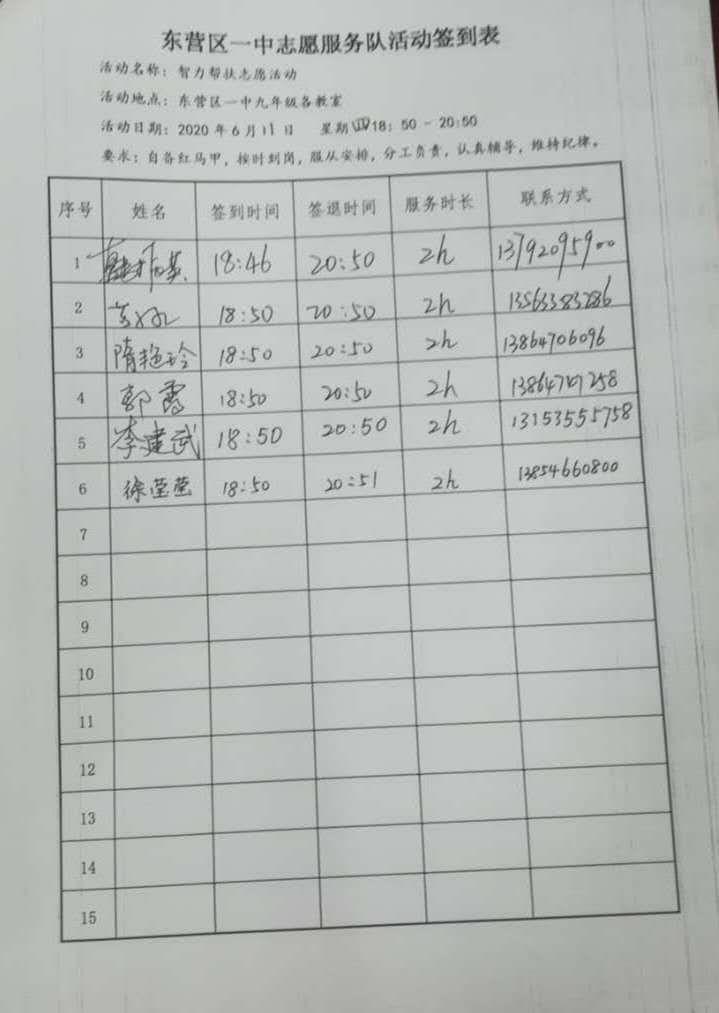 东营区一中志愿服务队活动签到表
活动名称：智力帮扶志愿活动
活动地点：东营区一中九年级各教室
活动日期：2020年6月11日 星期四18：50－20:50
要求：自备红马甲，按时到岗，服从安排，分工负责，认真辅导，维持纪律。
序号 姓名 签到时间 签退时间 服务时长 联系方式
1 18:46 20:50 2h 13792095900
2 18:50 20:50 2h 13563383286
3 隋艳玲 18:50 20:50 2h 13864706096
4 郭霞 18:50 20:50 2h
5 李建武 18:50 20:50 2h 13153555758
6 徐莹莹 18:50 20:51 2h 13854660800
7
8
9
10
11
12
13
14
15